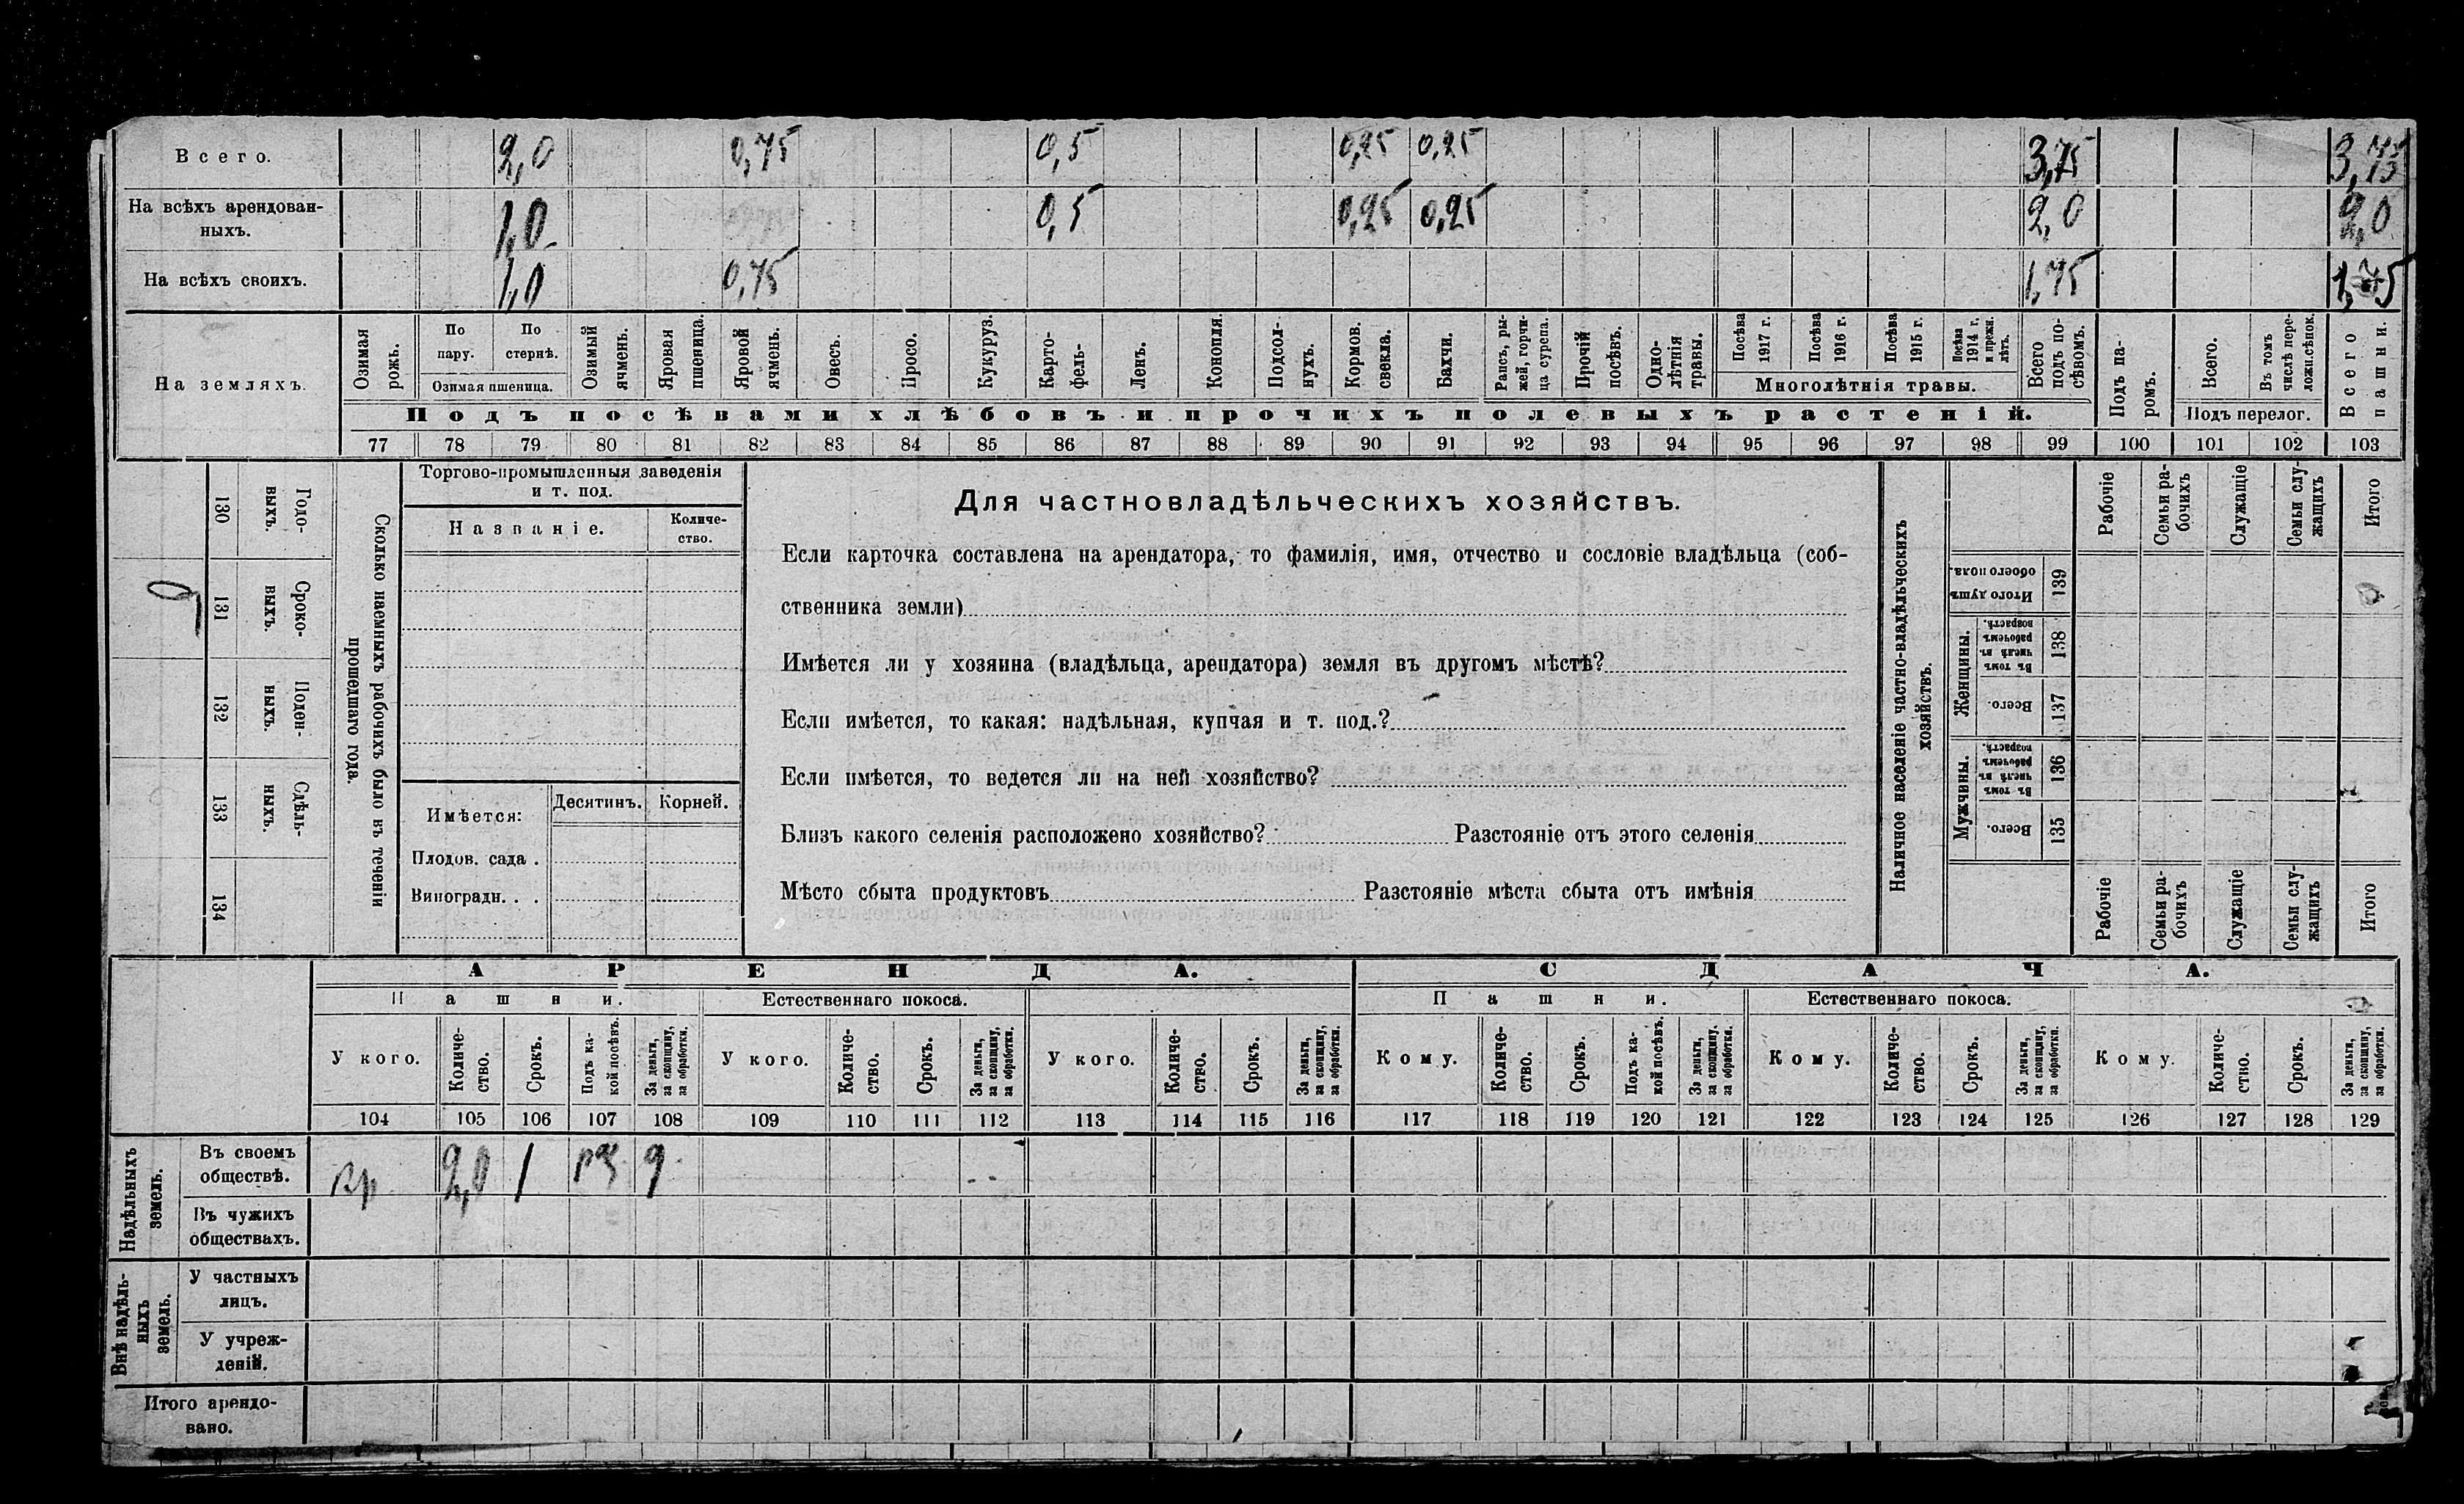 Всего. 2,0 0,75 0,5 0,25 0,25 3,75 3,75
На всѣхъ арендован-
ныхъ. 1,0 0,5 0,25 0,25 2,0 2,0
На всѣхъ своихъ. 1,0 0,75 1,75 1,75
На земляхъ.
Озимая
рожь.
По
пару.
По
стернѣ.
Озимая пшеница.
Озимый
ячмень.
Яровая
пшеница.
Яровой
ячмень.
Овесъ.
Просо.
Кукуруз.
Карто-
фель-
Ленъ.
Конопля.
Подсол-
нухъ.
Кормов.
свекла.
Бахчи.
Рапсъ, ры-
жей, горчи-
ца сурепа.
Прочій
посѣвъ.
Одно-
лѣтнія
травы.
Посѣва
1917 г.
Посѣва
1916 г.
Посѣва
1915 г.
Посѣва
1914 г.
и прежн.
лѣтъ.
Многолѣтнія травы.
Всего
подъ по-
сѣвомъ.
Подъ па-
ромъ.
Всего.
Въ томъ
числѣ пере-
лож.сѣнок.
Подъ перелог.
Всего
пашни.
Подъ посѣвами хлѣбовъ и прочихъ полевыхъ растеній.
77 78 79 80 81 82 83 84 85 86 87 88 89 90 91 92 93 94 95 96 97 98 99 100 101 102 103
130
Годо-
выхъ.
131
Сроко-
выхъ.
132
Поден-
ныхъ.
133
Сдѣль-
ныхъ.
134
Сколько наемныхъ рабочихъ было въ теченіи
прошедшаго года.
Торгово-промышленныя заведенія
и т. под.
Названіе.
Количе-
ство.
Имѣется:
Десятинъ. Корней.
Плодов. сада .
Виноградн. . .
Для частновладѣльческихъ хозяйствъ.
Если карточка составлена на арендатора, то фамилія, имя, отчество и сословіе владѣльца (соб-
ственника земли)
Имѣется ли у хозяина (владѣльца, арендатора) земля въ другомъ мѣстѣ?
Если имѣется, то какая: надѣльная, купчая и т. под.?
Если имѣется, то ведется ли на ней хозяйство?
Близъ какого селенія расположено хозяйство? Разстояніе отъ этого селенія
Мѣсто сбыта продуктовъ Разстояніе мѣста сбыта отъ имѣнія
Наличное населеніе частно-владѣльческихъ
хозяйствъ.
Рабочіе
Семьи ра-
бочихъ
Служащіе
Семьи слу-
жащихъ
Итого
Итого душъ
обоего пола.
139
Женщины.
Въ томъ
числѣ въ
рабочемъ
возрастѣ.
138
Всего.
137
Мужчины.
Въ томъ
числѣ въ
рабочемъ
возрастѣ.
136
Всего.
135
Рабочіе
Семьи ра-
бочихъ
Служащіе
Семьи слу-
жащихъ
Итого
АРЕНДА. СДАЧА.
Пашни. Естественнаго покоса. Пашни. Естественнаго покоса.
У кого.
Количе-
ство.
Срокъ.
Подъ ка-
кой посѣвъ.
За деньги,
за скопщину,
за обработки.
У кого.
Количе-
ство.
Срокъ.
За деньги,
за скопщину,
за обработки.
У кого.
Количе-
ство.
Срокъ.
За деньги,
за скопщину,
за обработки.
Кому.
Количе-
ство.
Срокъ.
Подъ ка-
кой посѣвъ.
За деньги,
за скопщину,
за обработки.
Кому.
Количе-
ство.
Срокъ.
За деньги,
за скопщину,
за обработки.
Кому.
Количе-
ство.
Срокъ.
За деньги,
за скопщину,
за обработки.
104 105 106 107 108 109 110 111 112 113 114 115 116 117 118 119 120 121 122 123 124 125 126 127 128 129
Надѣльныхъ
земель.
Въ своемъ
обществѣ. 2,0 1
Въ чужихъ
обществахъ.
Внѣ надѣль-
ныхъ
земель.
У частныхъ
лицъ.
У учреж-
деній.
Итого арендо-
вано.